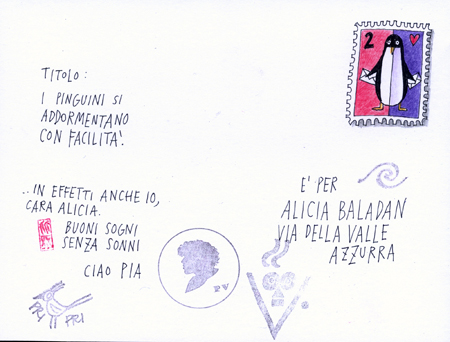 TITOLO:
I PINGUINI SI
ADDORMENTANO
CON FACILITA'.
..IN EFFETTI ANCHE IO,
CARA ALICIA.
BUONI SOGNI
SENZA SONNI
CIAO PIA
2
E' PER
ALICIA BALADAN
VIA DELLA VALLE
AZZURRA
PV
PRI PRI